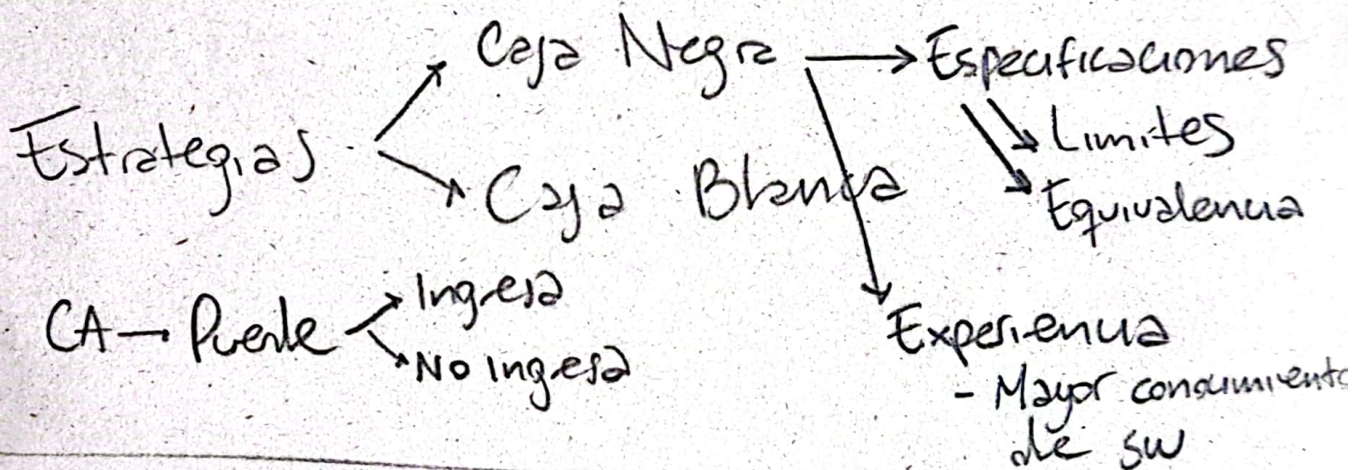 Estrategias
Caja Negra → Especificaciones
Limites
Equivalencia
Caja Blanca
Experiencia
- Mayor conocimiento
de sw
CA → Puede
Ingresa
No ingresa